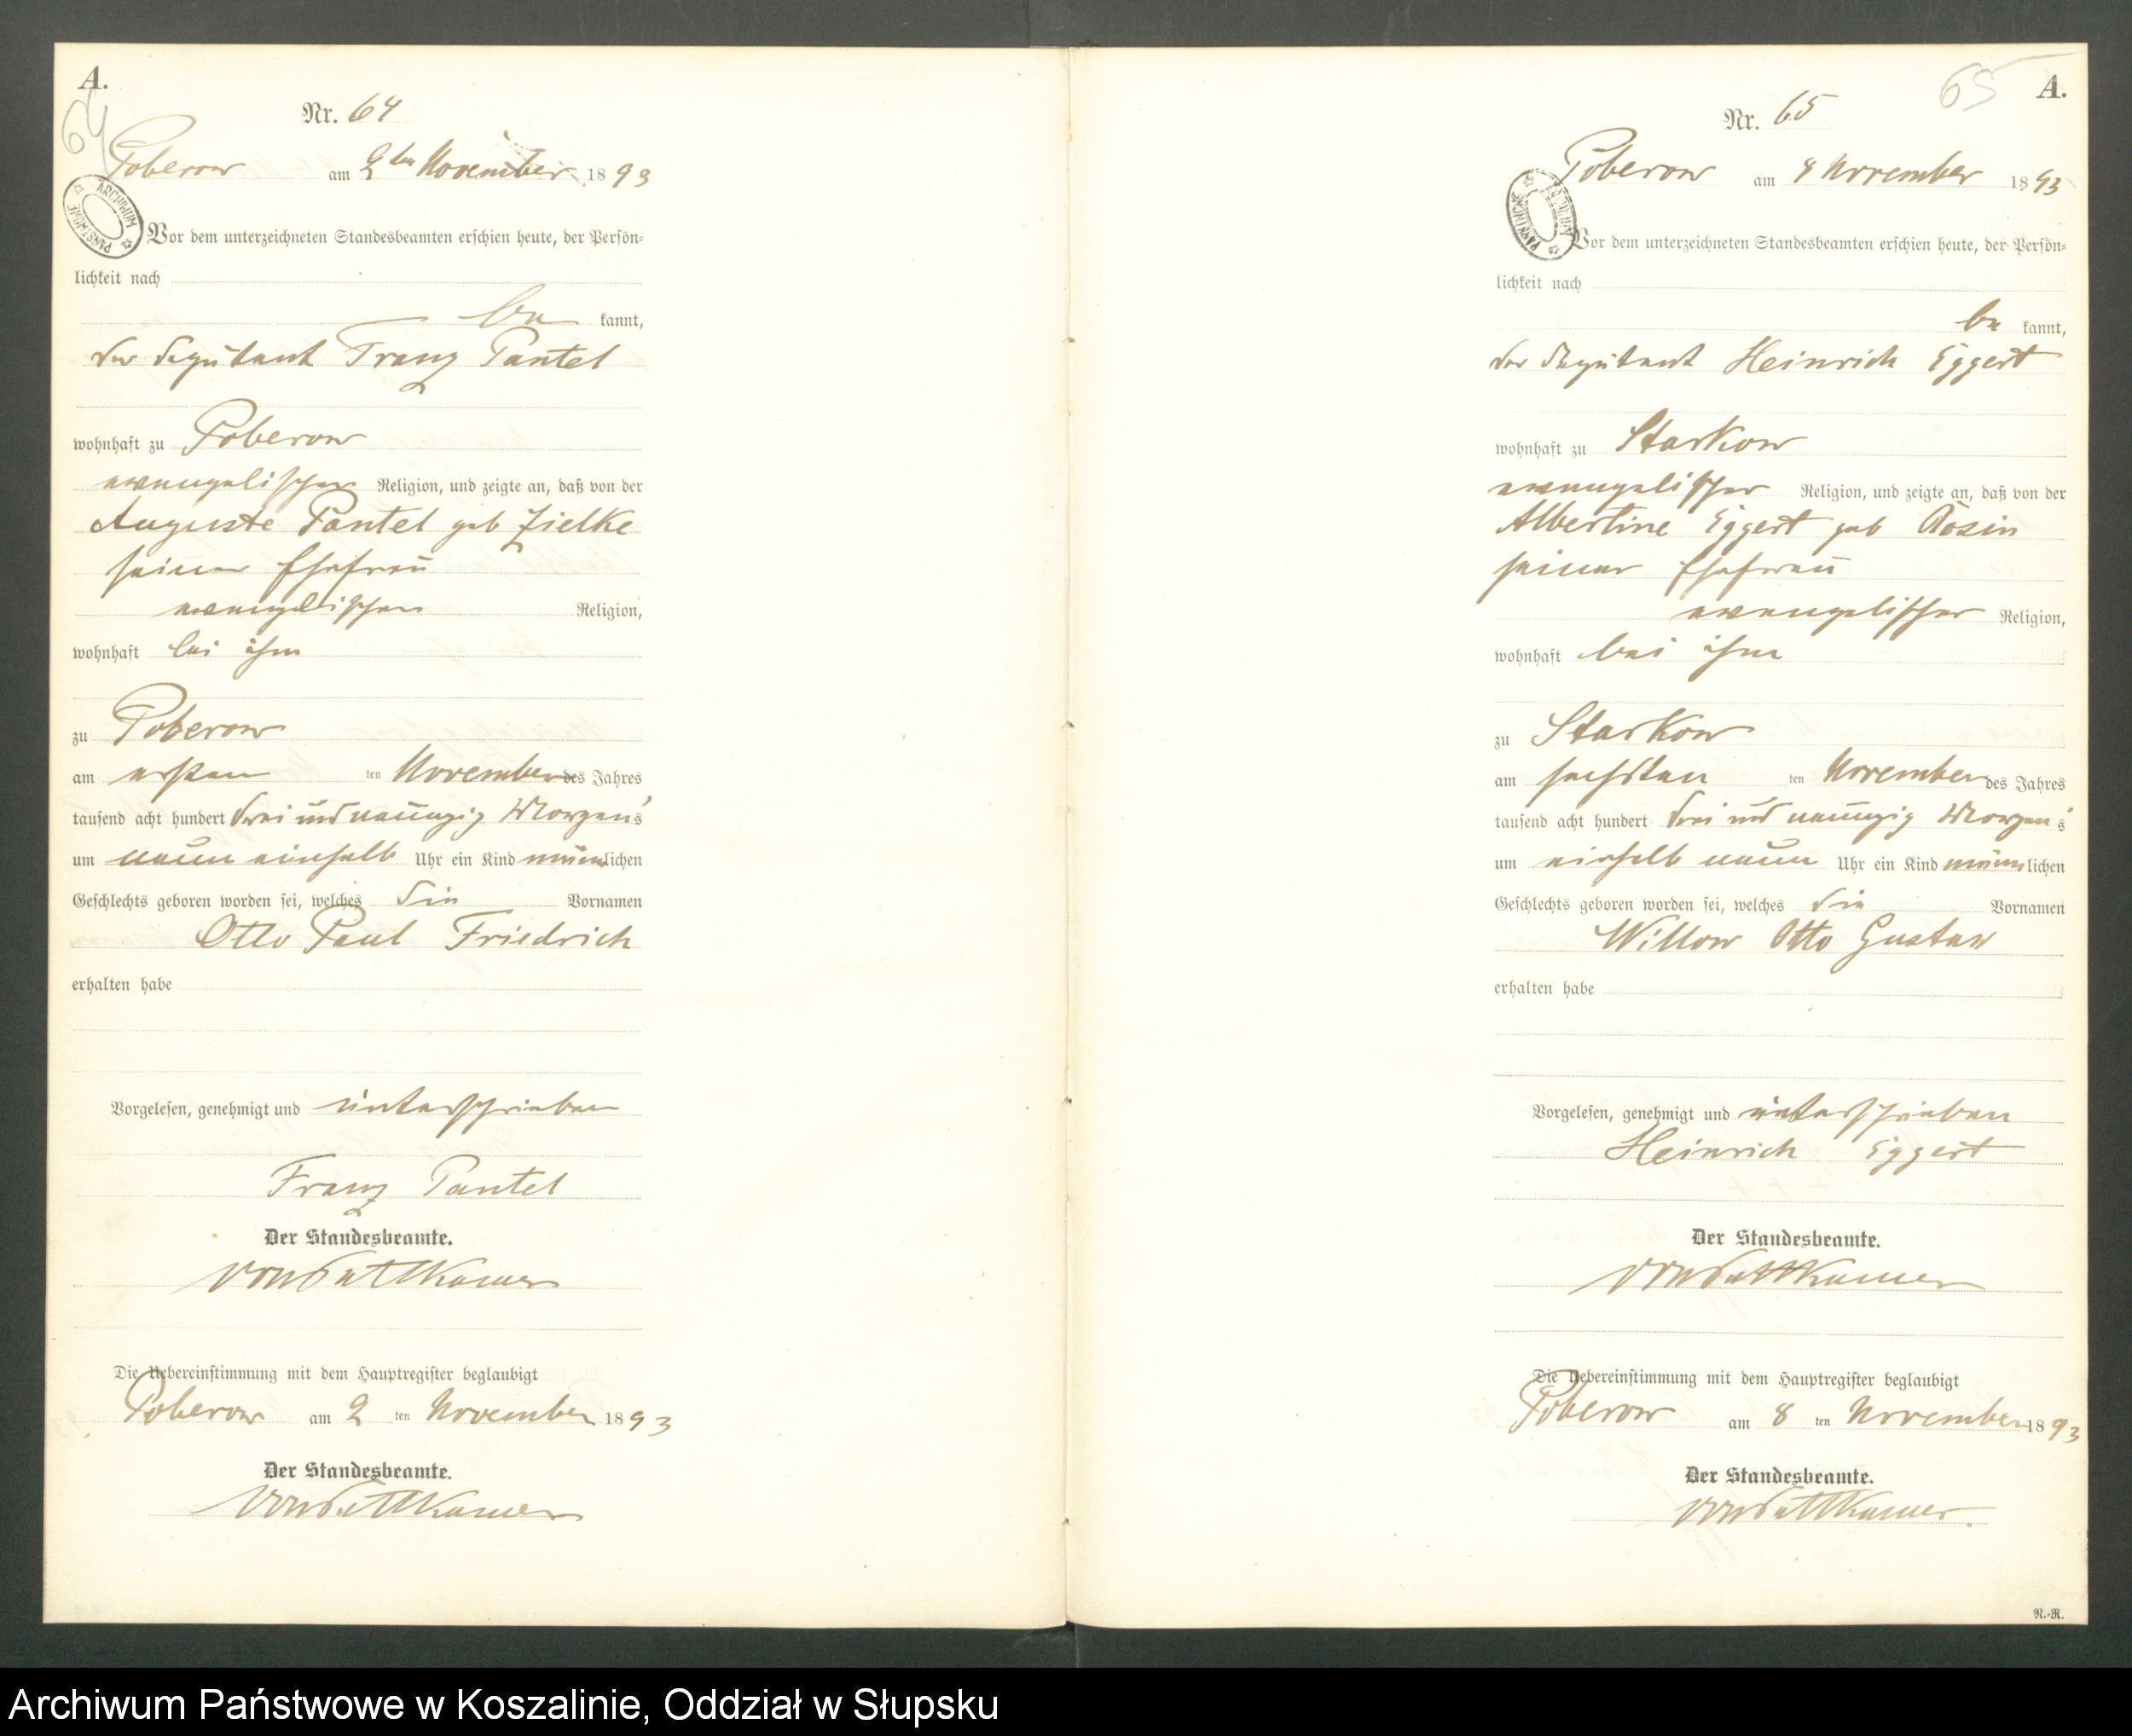 A.
64
Nr. 64
Poberow am 2ten November 1893
ARCHIWUM PAŃSTWOWE
Vor dem unterzeichneten Standesbeamten erschien heute, der Persön=
lichkeit nach
be kannt,
der Deputant Franz Pantel
wohnhaft zu Poberow
evangelischer Religion, und zeigte an, daß von der
Auguste Pantel geb Zielke
seiner Ehefrau
evangelischer Religion,
wohnhaft bei ihm
zu Poberow
am ersten ten November des Jahres
tausend acht hundert drei und neunzig Morgens
um neun einhalb Uhr ein Kind männlichen
Geschlechts geboren worden sei, welches die Vornamen
Otto Paul Friedrich
erhalten habe
Vorgelesen, genehmigt und unterschrieben
Franz Pantel
Der Standesbeamte.
von Puttkamer
Die Uebereinstimmung mit dem Hauptregister beglaubigt
Poberow am 2 ten November 1893
Der Standesbeamte.
von Puttkamer
65 A.
Nr. 65
Poberow am 8 November 1893
ARCHIWUM PAŃSTWOWE
Vor dem unterzeichneten Standesbeamten erschien heute, der Persön=
lichkeit nach
be kannt,
der Deputant Heinrich Eggert
wohnhaft zu Starkow
evangelischer Religion, und zeigte an, daß von der
Albertine Eggert geb Rosin
seiner Ehefrau
evangelischer Religion,
wohnhaft bei ihm
zu Starkow
am sechsten ten November des Jahres
tausend acht hundert drei und neunzig Morgens
um einhalb neun Uhr ein Kind männlichen
Geschlechts geboren worden sei, welches die Vornamen
Otto Gustav
erhalten habe
Vorgelesen, genehmigt und unterschrieben
Heinrich Eggert
Der Standesbeamte.
von Puttkamer
Die Uebereinstimmung mit dem Hauptregister beglaubigt
Poberow am 8 ten November 1893
Der Standesbeamte.
von Puttkamer
N.-R.
Archiwum Państwowe w Koszalinie, Oddział w Słupsku